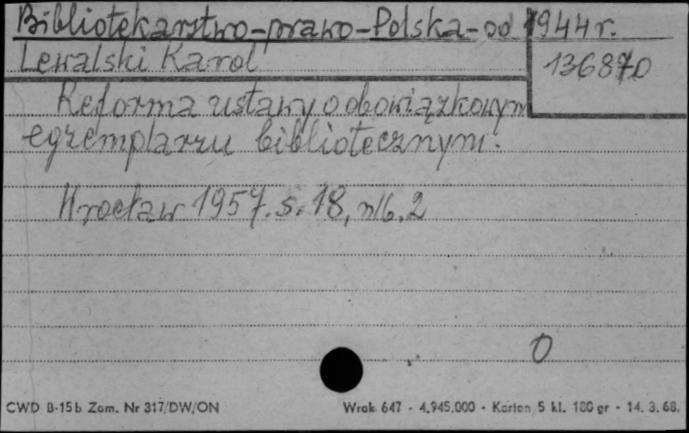 Bibliotekarstwo-prawo-Polska-od 1944 r.
Lewalski Karol
136870
Reforma ustawy o obowiązkowym
egzemplarzu bibliotecznym.
Wrocław 1957. s. 18, nlb. 2
0
CWD B-15b Zam. Nr 317/DW/ON
Wrak. 647 - 4.945.000 - Karton 5 kl. 180 gr - 14. 3. 68.